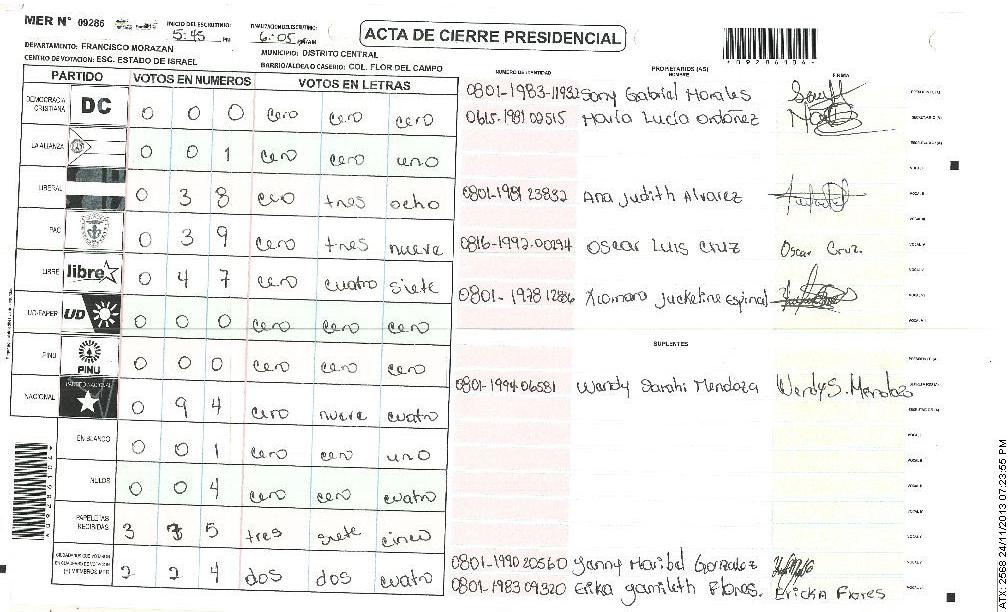 MER N° 09286
INICIO DEL ESCRUTINIO: 5:45 PM
FINALIZACION DEL ESCRUTINIO: 6:05 PM/AM
ACTA DE CIERRE PRESIDENCIAL
DEPARTAMENTO: FRANCISCO MORAZAN
MUNICIPIO: DISTRITO CENTRAL
CENTRO DE VOTACION: ESC. ESTADO DE ISRAEL
BARRIO/ALDEA O CASERIO: COL. FLOR DEL CAMPO
PARTIDO VOTOS EN NUMEROS VOTOS EN LETRAS
NUMERO DE IDENTIDAD PROPIETARIOS (AS) NOMBRE FIRMA
DEMOCRACIA CRISTIANA DC 0 0 0 cero cero cero
LA ALIANZA 0 0 1 cero cero uno
LIBERAL 0 3 8 cero tres ocho
PAC 0 3 9 cero tres nueve
LIBRE libre 0 4 7 cero cuatro siete
UD-FAPER UD 0 0 0 cero cero cero
PINU PINU 0 0 0 cero cero cero
NACIONAL PARTIDO NACIONAL 0 9 4 cero nueve cuatro
EN BLANCO 0 0 1 cero cero uno
NULOS 0 0 4 cero cero cuatro
PAPELETAS RECIBIDAS 3 7 5 tres siete cinco
2 2 4 dos dos cuatro
0801-1983-11932 Sony Gabriel Morales
0615-1981 02515 María Lucía Ordoñez
0801-1981 23832 Ana Judith Alvarez
0816-1992-00294 Oscar Luis Cruz Oscar Cruz.
0801-1978 12886 Xiomara Jackeline Espinal
SUPLENTES
0801-1994-06581 Wendy Sarahi Mendoza Wendy S. Mendoza
0801-1990 20560 Yanny Maribel Gonzalez
0801-1983 09320 Erika Yamileth Flores. Ericka Flores
ATX-2568 24/11/2013 07:23:55 PM